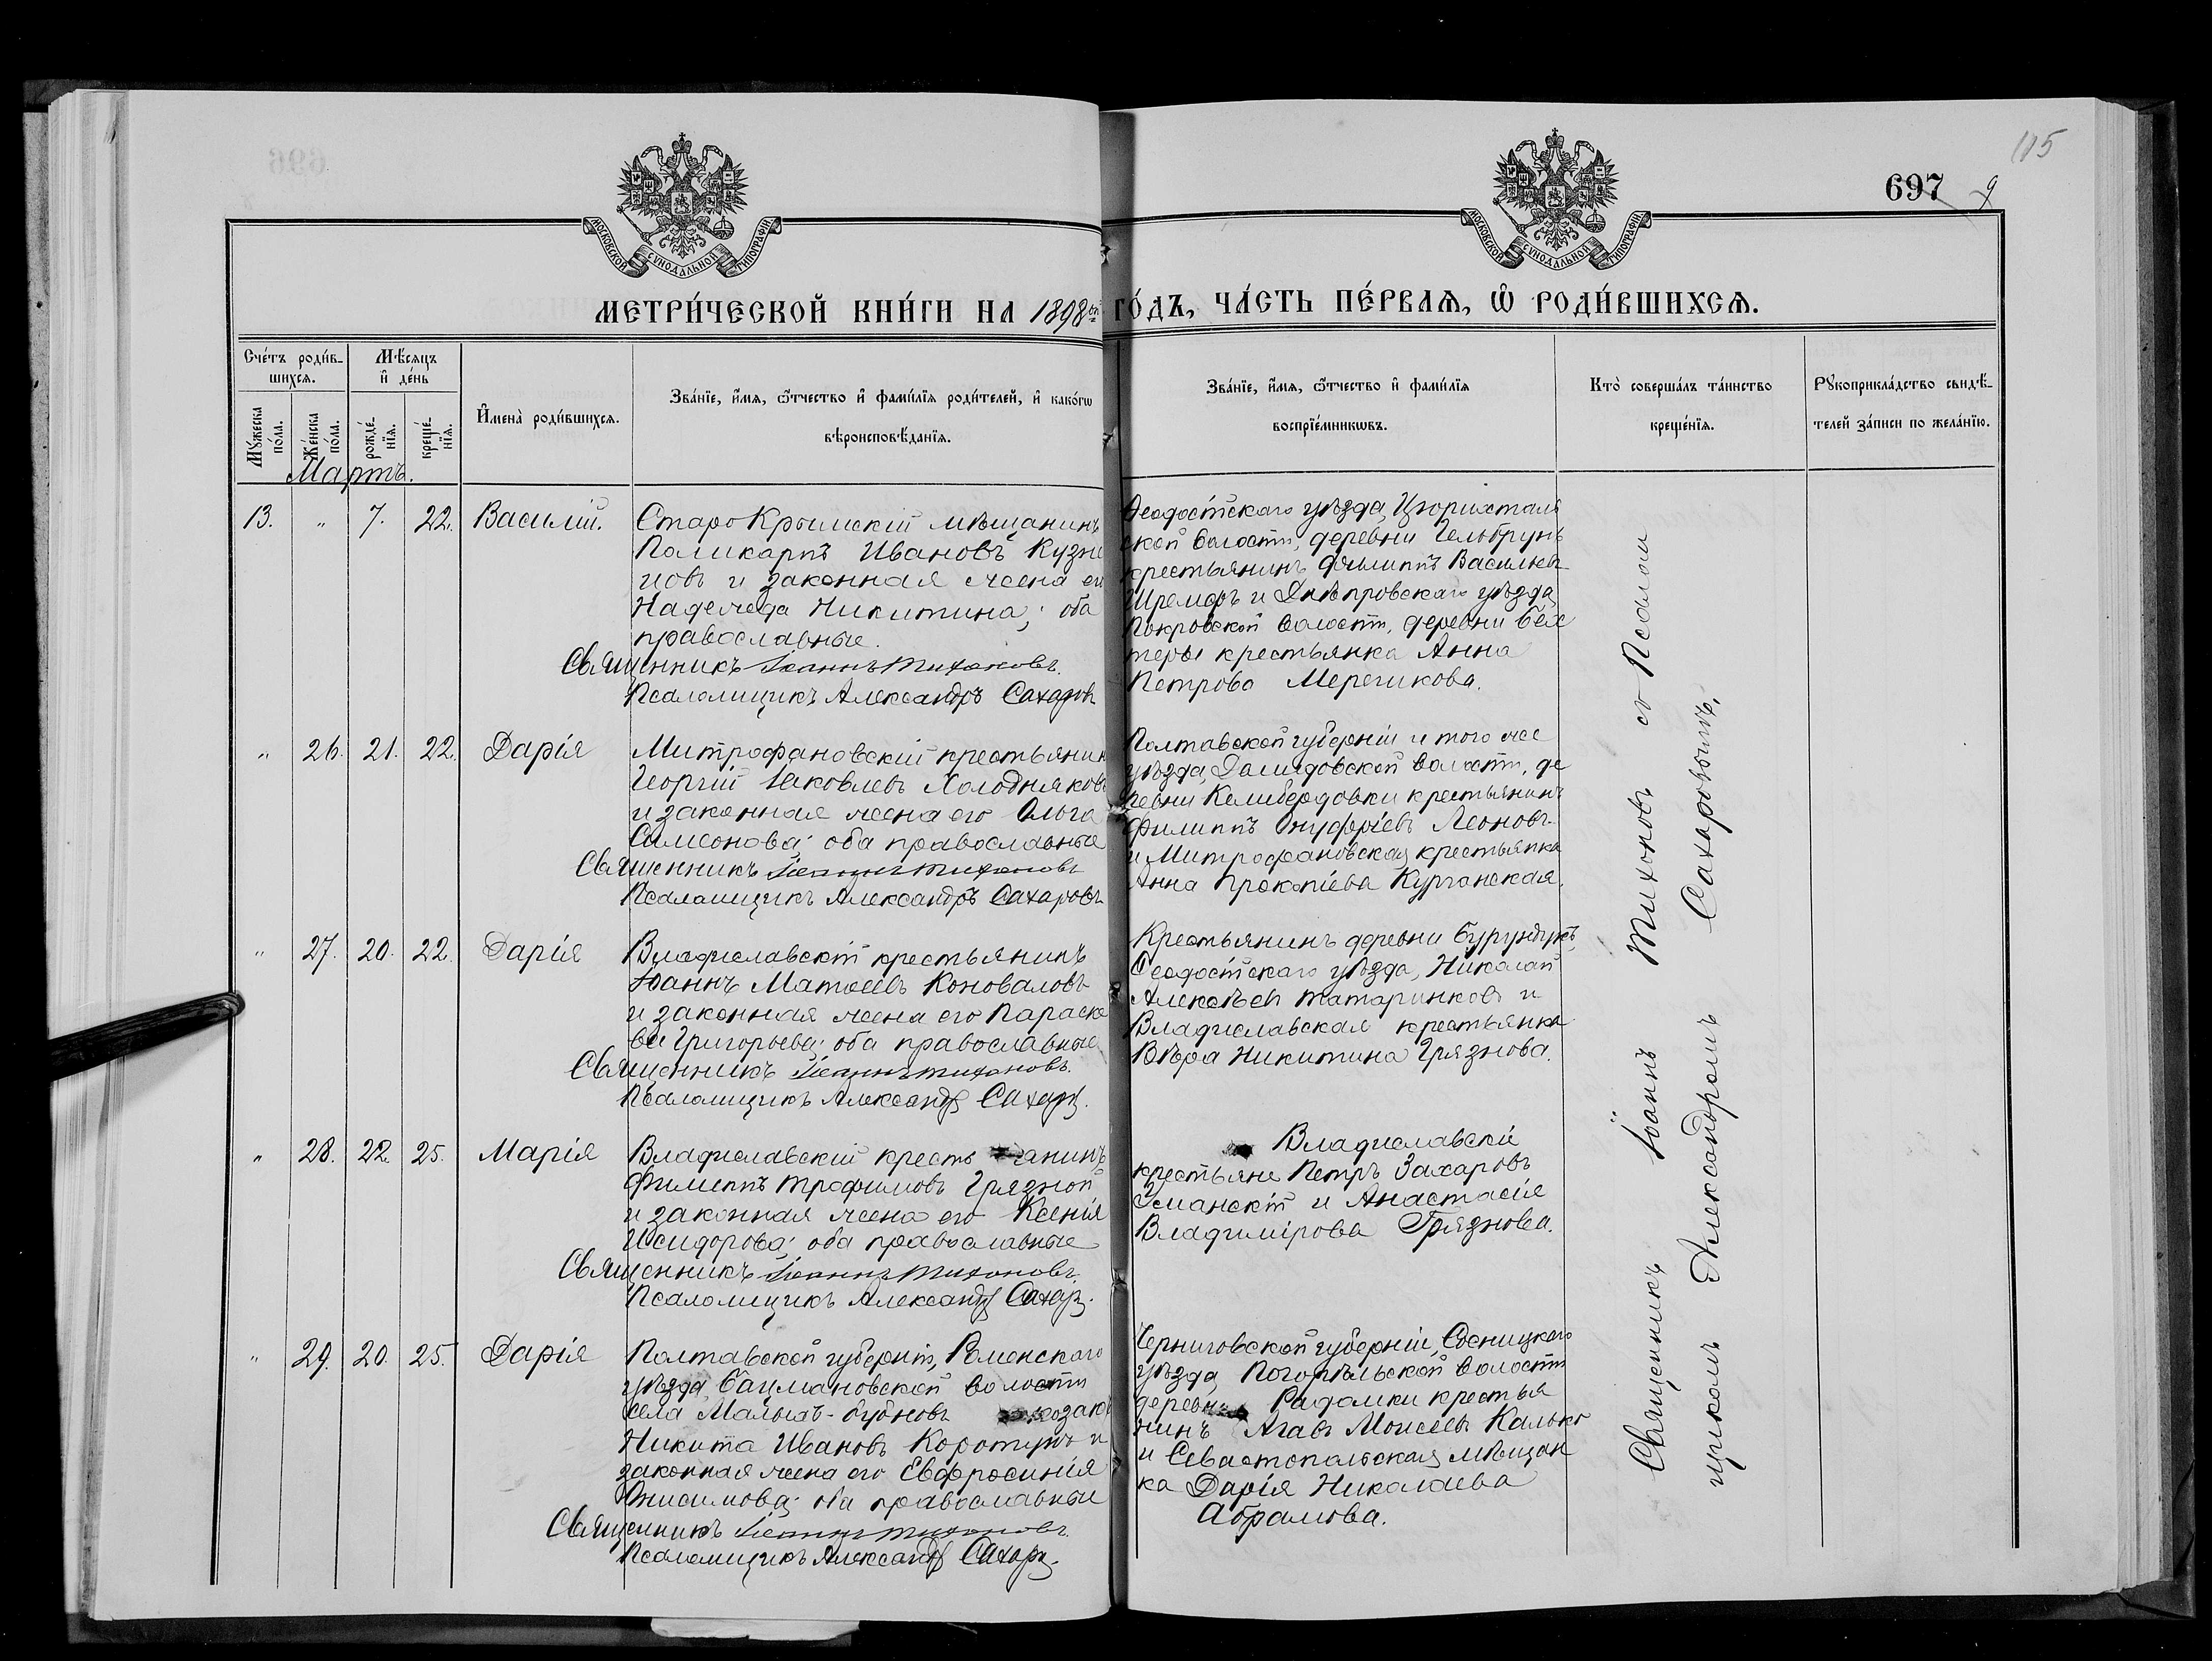 115
697
9
МОСКОВСКОЙ СѴНОДАЛЬНОЙ ТИПОГРАФІИ
МОСКОВСКОЙ СѴНОДАЛЬНОЙ ТИПОГРАФІИ
МЕТРИ́ЧЕСКОЙ КНИ́ГИ НА 1898й ГО́ДЪ, ЧА́СТЬ ПЕ́РВАѦ, Ѡ РОДИ́ВШИХСѦ.
Сче́тъ роди́в-
шихсѧ.
Мꙋ́жеска по́ла.
Же́нска по́ла.
Мѣ́сяцъ
и҆ де́нь
рожде́-нїѧ.
креще́-нїѧ.
И҆мена̀ роди́вшихсѧ.
Зва́нїе, и҆́мѧ, ѻ҆́тчество и҆ фами́лїѧ роди́телей, и҆ како́гѡ
вѣроисповѣ́данїѧ.
Зва́нїе, и҆́мѧ, ѻ҆́тчество и҆ фами́лїѧ
воспрїе́мникѡвъ.
Кто̀ соверша́лъ та́инство
креще́нїѧ.
Рꙋкоприкла́дство свидѣ́-
телей за́писи по жела́нїю.
Мартъ.
13. " 7. 22. Василій.
СтароКрымскій мѣщанинъ
Поликарпъ Ивановъ Кузне
цовъ и законная жена его
Надежда Никитина; оба
православные.
Священникъ Іоаннъ Тихоновъ.
Псаломщикъ Александръ Сахаровъ
Ѳеодосійскаго уѣзда, Цюрихталь
ской волости, деревни Гельбрунъ
крестьянинъ Филиппъ Васильевъ
Шремфъ и Днѣпровскаго уѣзда
Покровской волости, деревни Бех
теры крестьянка Анна
Петрова Мерегикова.
" 26. 21. 22. Дарія
Митрофановскій крестьянинъ
Георгій Іаковлевъ Холодняковъ
и законная жена его Ольга
Симеонова; оба православные
Священникъ Іоаннъ Тихоновъ
Псаломщикъ Александръ Сахаровъ
Полтавской губерніи и того же
уѣзда, волости, де
ревни Келибердовки крестьянинъ
Филиппъ Онуфріевъ Леоновъ
и Митрофановская крестьянка
Анна Прокопіева Курганская.
" 27. 20. 22. Дарія
Владиславскій крестьянинъ
Іоаннъ Матѳеевъ Коноваловъ
и законная жена его Параске
ва Григорьева; оба православные
Священникъ Іоаннъ Тихоновъ.
Псаломщикъ Александръ Сахаръ.
Крестьянинъ деревни Бурундукъ
Ѳеодосійскаго уѣзда, Николай
Алексѣевъ Татаринковъ и
Владиславская крестьянка
Вѣра Никитина Грязнова.
" 28. 22. 25. Марія
Владиславскій кресть янинъ
Филиппъ Трофимовъ Грязной
и законная жена его Ксенія
Исидорова; оба православные
Священникъ Іоаннъ Тихоновъ.
Псаломщикъ Александръ Сахар.
Владиславскіе
крестьяне Петръ Захаровъ
Усманскій и Анастасія
Владимірова Грязнова.
" 29. 20. 25. Дарія
Полтавской губерніи, Роменскаго
уѣзда, Бацмановской волости
села Малыхъ-бубновъ козакъ
Никита Ивановъ Коротунъ и
законная жена его Евфросинія
Онисимова; оба православные
Священникъ Іоаннъ Тихоновъ.
Псаломщикъ Александръ Сахар.
Черниговской губерніи, Сосницкаго
уѣзда, Погорѣльской волости
деревни Радомки крестья
нинъ Агавъ Моисеевъ Калько
и Севастопольская мѣщан
ка Дарія Николаева
Абрамова.
Священникъ Іоаннъ Тихоновъ съ Псалом
щикомъ Александромъ Сахаровымъ.